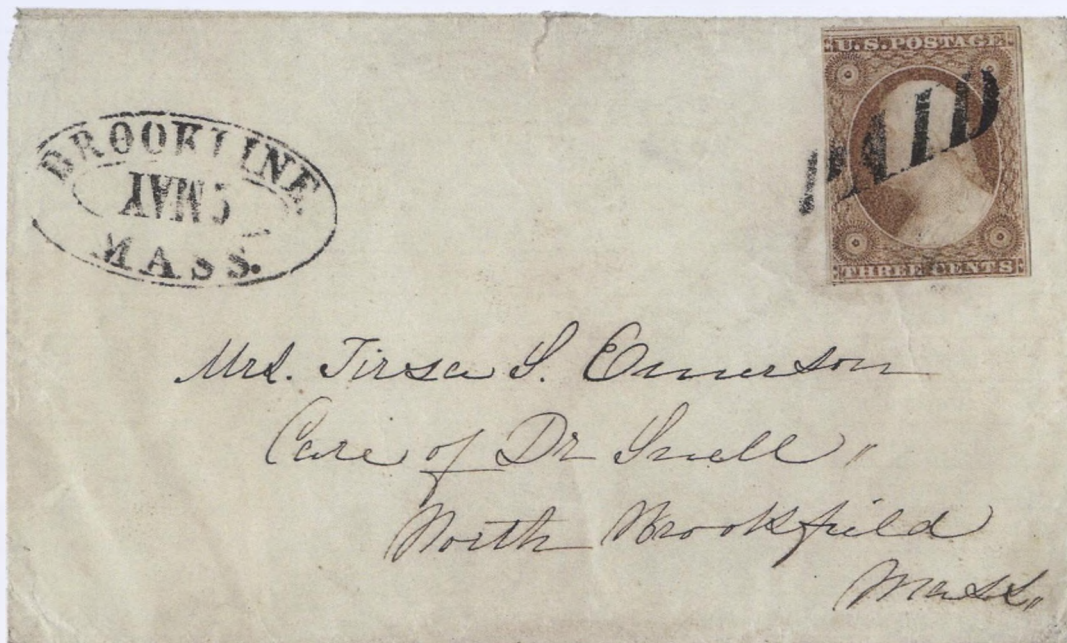 BROOKLINE.
MAY
MASS.
U.S. POSTAGE
PAID
THREE CENTS
Mrs. Tirsa S. Emerson
Care of Dr Snell "
North Brookfield
Mass. "